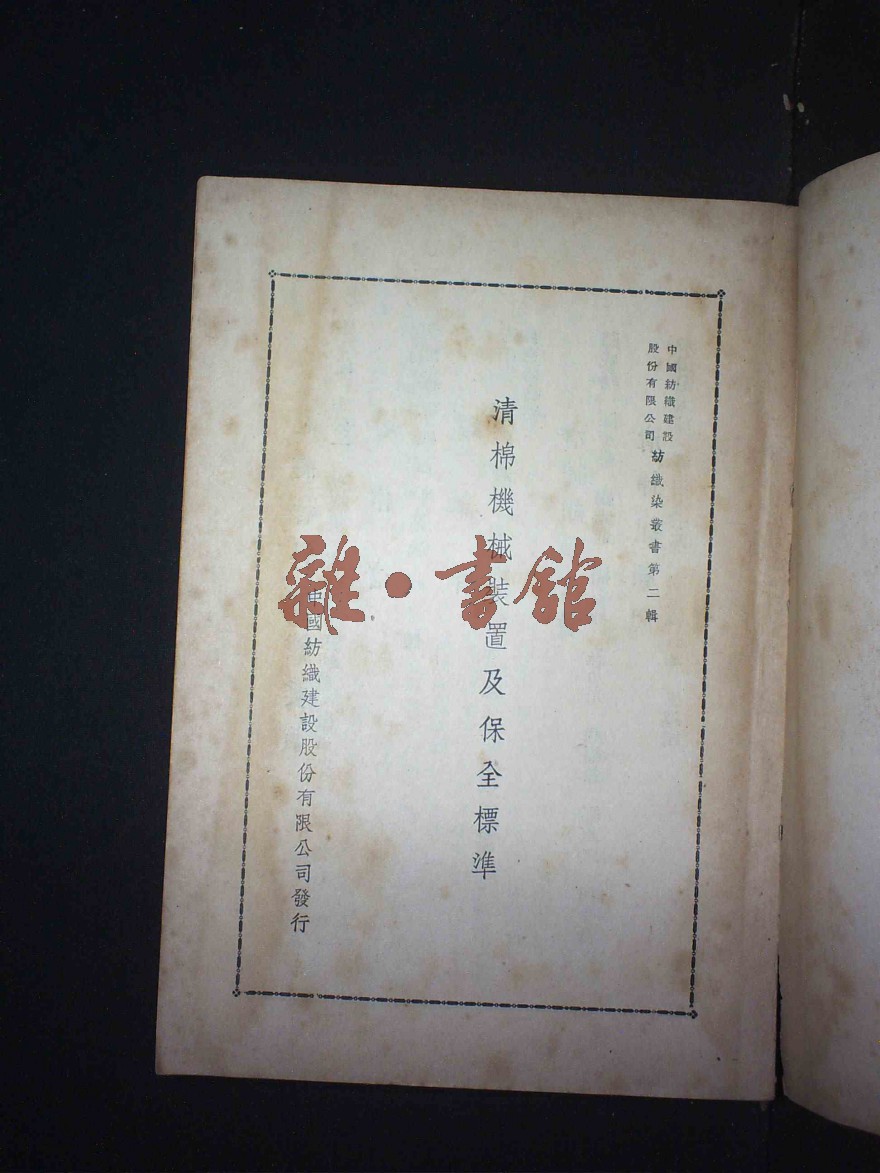 中國紡織建設
股份有限公司
紡織染叢書第二輯
清棉機械裝置及保全標準
中國紡織建設股份有限公司發行
雜·書館